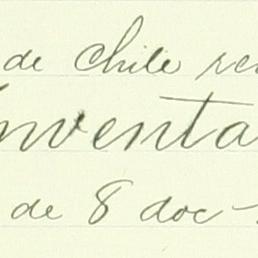 de Chile ren
Inventa
de 8 doc-